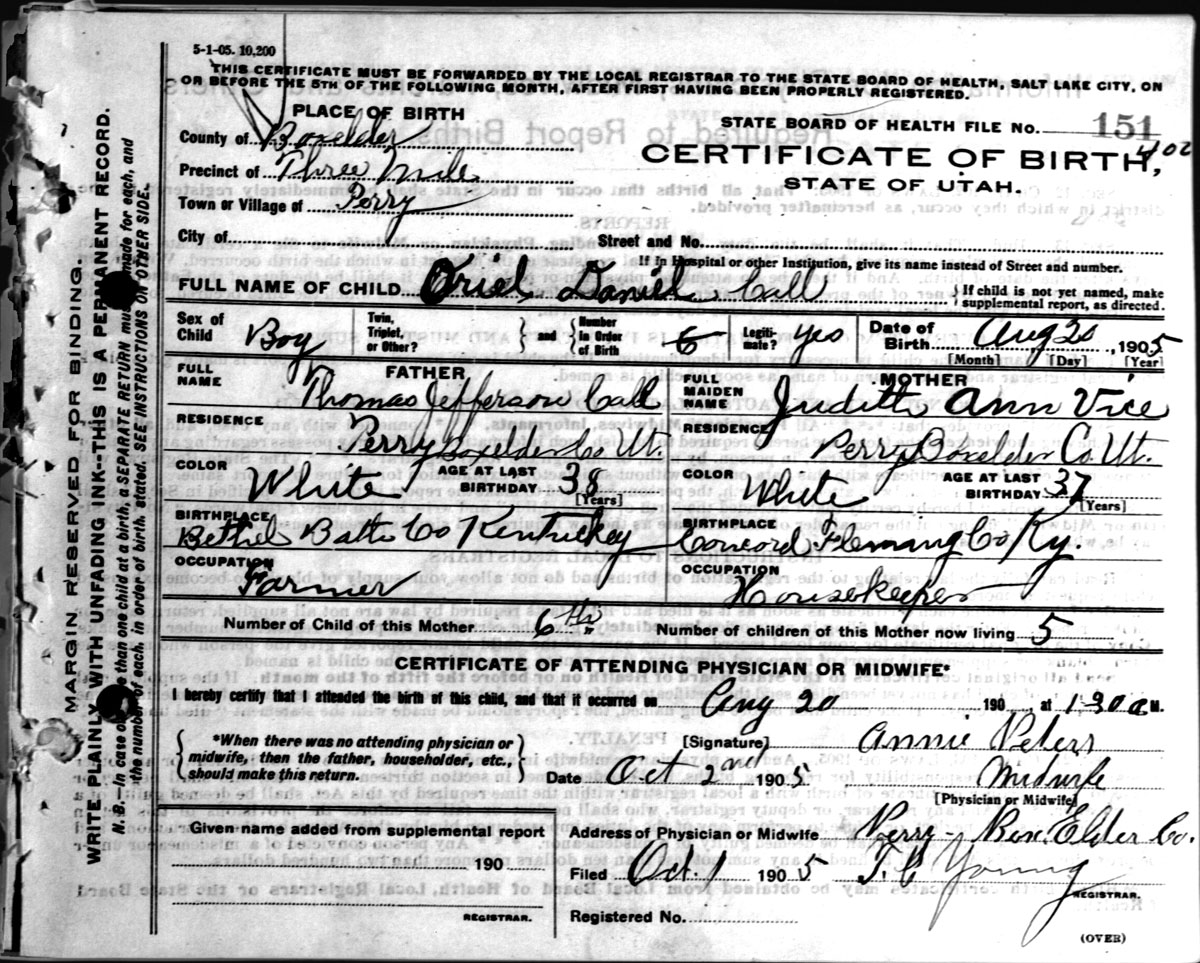 5-1-05. 10,200
THIS CERTIFICATE MUST BE FORWARDED BY THE LOCAL REGISTRAR TO THE STATE BOARD OF HEALTH, SALT LAKE CITY, ON
OR BEFORE THE 5TH OF THE FOLLOWING MONTH, AFTER FIRST HAVING BEEN PROPERLY REGISTERED.
PLACE OF BIRTH
County of Boxelder
Precinct of Three Mile
Town or Village of Perry
STATE BOARD OF HEALTH FILE NO. 151
402
CERTIFICATE OF BIRTH,
STATE OF UTAH.
City of Street and No.
If in Hospital or other Institution, give its name instead of Street and number.
FULL NAME OF CHILD Oriel Daniel Call { If child is not yet named, make supplemental report, as directed.
Sex of Child Boy Twin, Triplet, or Other? } and { Number in Order of Birth 6 Legitimate? yes Date of Birth Aug 20, 1905
[Month] [Day] [Year]
FATHER
FULL NAME Thomas Jefferson Call
RESIDENCE Perry Boxelder Co Ut.
COLOR White AGE AT LAST BIRTHDAY 38 [Years]
BIRTHPLACE Bethel Batts Co Kentuckey
OCCUPATION Farmer
MOTHER
FULL MAIDEN NAME Judith Ann Vice
RESIDENCE Perry Boxelder Co. Ut.
COLOR White AGE AT LAST BIRTHDAY 37 [Years]
BIRTHPLACE Concord Fleming Co Ky.
OCCUPATION Housekeeper
Number of Child of this Mother 6th Number of children of this Mother now living 5
CERTIFICATE OF ATTENDING PHYSICIAN OR MIDWIFE*
I hereby certify that I attended the birth of this child, and that it occurred on Aug 20 190 , at 1-30 a M.
{ *When there was no attending physician or
midwife, then the father, householder, etc.,
should make this return. }
[Signature] Annie Peters
Date Oct 2nd 1905 Midwife
[Physician or Midwife]
Given name added from supplemental report
190
REGISTRAR.
Address of Physician or Midwife Perry - Box Elder Co.
Filed Oct. 1 1905 T. C Young
REGISTRAR.
Registered No.
(OVER)
MARGIN RESERVED FOR BINDING.
WRITE PLAINLY WITH UNFADING INK--THIS IS A PERMANENT RECORD.
N. B.--In case of more than one child at a birth, a SEPARATE RETURN must be made for each, and
the number of each, in order of birth, stated. SEE INSTRUCTIONS ON OTHER SIDE.